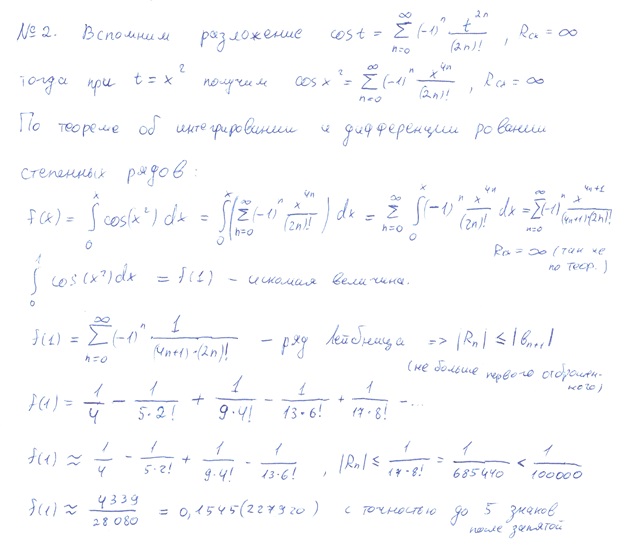 №2. Вспомним разложение cos t = ∑_{n=0}^{∞} (-1)^n t^{2n}/(2n)! , R_{сх} = ∞
тогда при t = x^2 получим cos x^2 = ∑_{n=0}^{∞} (-1)^n x^{4n}/(2n)! , R_{сх} = ∞
По теореме об интегрировании и дифференцировании
степенных рядов:
f(x) = ∫_0^x cos(x^2) dx = ∫_0^x (∑_{n=0}^{∞} (-1)^n x^{4n}/(2n)!) dx = ∑_{n=0}^{∞} ∫_0^x (-1)^n x^{4n}/(2n)! dx = ∑_{n=0}^{∞} (-1)^n x^{4n+1}/((4n+1)(2n)!)
R_{сх} = ∞ (так же
по теор.)
∫_0^1 cos(x^2) dx = f(1) – искомая величина.
f(1) = ∑_{n=0}^{∞} (-1)^n 1/((4n+1)·(2n)!) – ряд Лейбница => |R_n| ≤ |b_{n+1}|
(не больше первого отброшен-
ного)
f(1) = 1/4 - 1/(5·2!) + 1/(9·4!) - 1/(13·6!) + 1/(17·8!) - ...
f(1) ≈ 1/4 - 1/(5·2!) + 1/(9·4!) - 1/(13·6!) , |R_n| ≤ 1/(17·8!) = 1/685440 < 1/100000
f(1) ≈ 4339/28080 = 0,1545(227920) с точностью до 5 знаков
после запятой